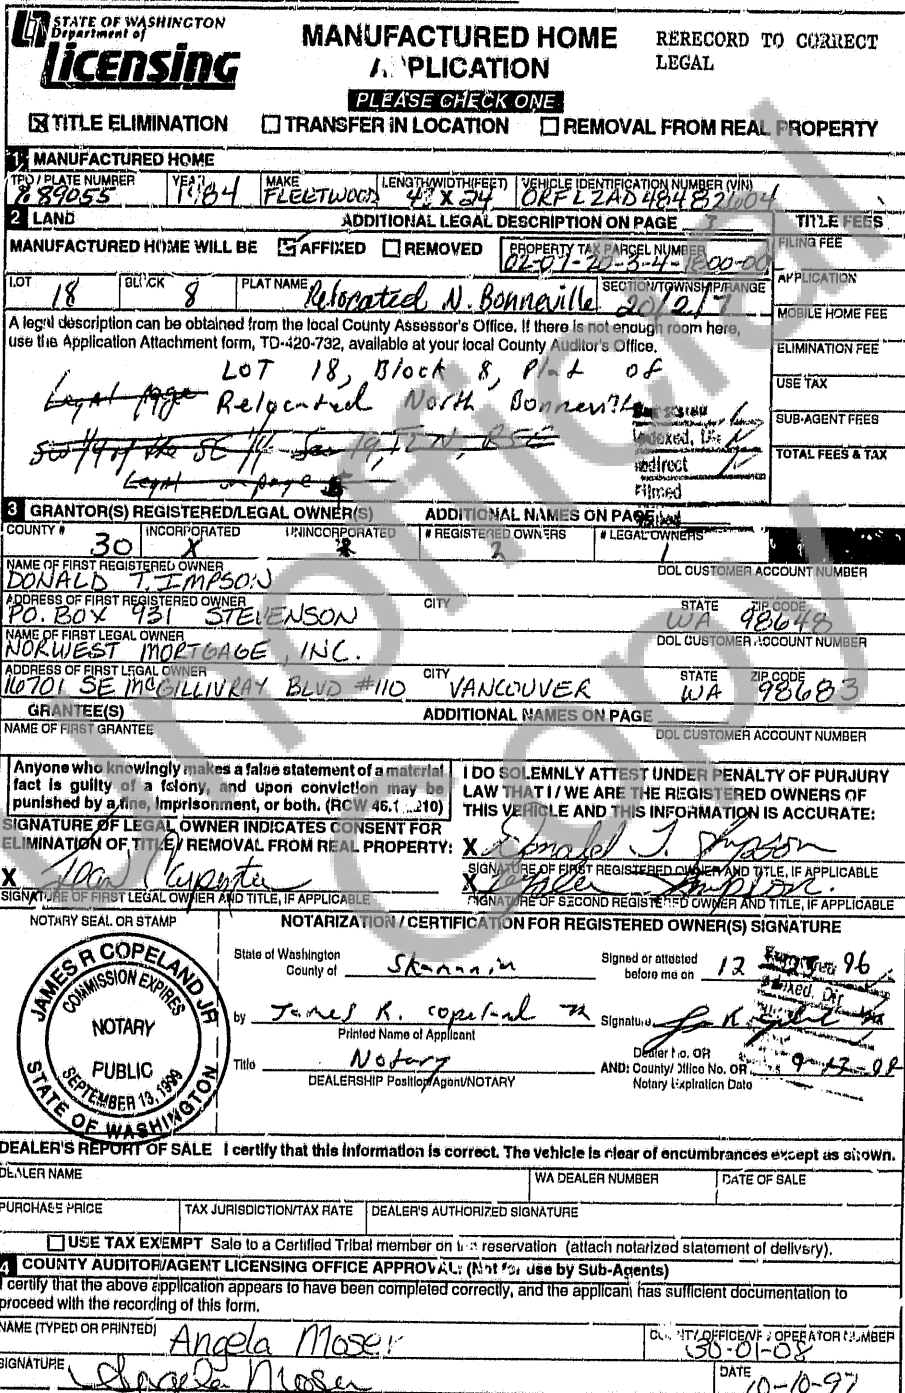 STATE OF WASHINGTON
Department of
Licensing
MANUFACTURED HOME
APPLICATION
RERECORD TO CORRECT
LEGAL
PLEASE CHECK ONE
TITLE ELIMINATION TRANSFER IN LOCATION REMOVAL FROM REAL PROPERTY
1 MANUFACTURED HOME
TPO / PLATE NUMBER YEAR MAKE LENGTH/WIDTH(FEET) VEHICLE IDENTIFICATION NUMBER (VIN)
89055 1984 FLEETWOOD X 24
2 LAND ADDITIONAL LEGAL DESCRIPTION ON PAGE 3 TITLE FEES
MANUFACTURED HOME WILL BE AFFIXED REMOVED PROPERTY TAX PARCEL NUMBER FILING FEE
02-07-20-3-4-1800-00
LOT BLOCK PLAT NAME SECTION/TOWNSHIP/RANGE APPLICATION
18 8 Relocated N. Bonneville 20/2/7
MOBILE HOME FEE
A legal description can be obtained from the local County Assessor's Office. If there is not enough room here,
use the Application Attachment form, TD-420-732, available at your local County Auditor's Office.
ELIMINATION FEE
LOT 18, Block 8, Plat of
USE TAX
Legal page Relocated North Bonneville
SUB-AGENT FEES
Indexed, Dir
SW 1/4 of the SE 1/4 Sec 19, T2N, R5E
TOTAL FEES & TAX
Indirect
Legal on page
Filmed
3 GRANTOR(S) REGISTERED/LEGAL OWNER(S) ADDITIONAL NAMES ON PAGE
COUNTY # INCORPORATED UNINCORPORATED # REGISTERED OWNERS # LEGAL OWNERS
30 X 2 1
NAME OF FIRST REGISTERED OWNER DOL CUSTOMER ACCOUNT NUMBER
DONALD T. IMPSON
ADDRESS OF FIRST REGISTERED OWNER CITY STATE ZIP CODE
PO. BOX 931 STEVENSON WA 98648
NAME OF FIRST LEGAL OWNER DOL CUSTOMER ACCOUNT NUMBER
NORWEST MORTGAGE, INC.
ADDRESS OF FIRST LEGAL OWNER CITY STATE ZIP CODE
16701 SE McGILLIVRAY BLVD #110 VANCOUVER WA 98683
GRANTEE(S) ADDITIONAL NAMES ON PAGE
NAME OF FIRST GRANTEE DOL CUSTOMER ACCOUNT NUMBER
Anyone who knowingly makes a false statement of a material
fact is guilty of a felony, and upon conviction may be
punished by a fine, imprisonment, or both. (RCW 46.1 .210)
I DO SOLEMNLY ATTEST UNDER PENALTY OF PURJURY
LAW THAT I / WE ARE THE REGISTERED OWNERS OF
THIS VEHICLE AND THIS INFORMATION IS ACCURATE:
SIGNATURE OF LEGAL OWNER INDICATES CONSENT FOR
ELIMINATION OF TITLE / REMOVAL FROM REAL PROPERTY:
X Donald T. Impson
SIGNATURE OF FIRST REGISTERED OWNER AND TITLE, IF APPLICABLE
X Carpenter
X Impson
SIGNATURE OF FIRST LEGAL OWNER AND TITLE, IF APPLICABLE
SIGNATURE OF SECOND REGISTERED OWNER AND TITLE, IF APPLICABLE
NOTARY SEAL OR STAMP
NOTARIZATION / CERTIFICATION FOR REGISTERED OWNER(S) SIGNATURE
JAMES R COPELAND JR
COMMISSION EXPIRES
NOTARY
PUBLIC
SEPTEMBER 13, 1999
STATE OF WASHINGTON
State of Washington
County of Skamania
Signed or attested
before me on 12 96
by James R. Copeland Jr
Signature
Printed Name of Applicant
Title Notary
DEALERSHIP Position/Agent/NOTARY
Dealer No. OR
AND: County/Office No. OR
Notary Expiration Date
DEALER'S REPORT OF SALE I certify that this information is correct. The vehicle is clear of encumbrances except as shown.
DEALER NAME WA DEALER NUMBER DATE OF SALE
PURCHASE PRICE TAX JURISDICTION/TAX RATE DEALER'S AUTHORIZED SIGNATURE
USE TAX EXEMPT Sale to a Certified Tribal member on the reservation (attach notarized statement of delivery).
4 COUNTY AUDITOR/AGENT LICENSING OFFICE APPROVAL: (Not for use by Sub-Agents)
I certify that the above application appears to have been completed correctly, and the applicant has sufficient documentation to
proceed with the recording of this form.
NAME (TYPED OR PRINTED) Angela Moser
COUNTY/OFFICE/VF OPERATOR NUMBER
30-01-08
SIGNATURE Angela Moser
DATE 10-10-97
Unofficial
Copy